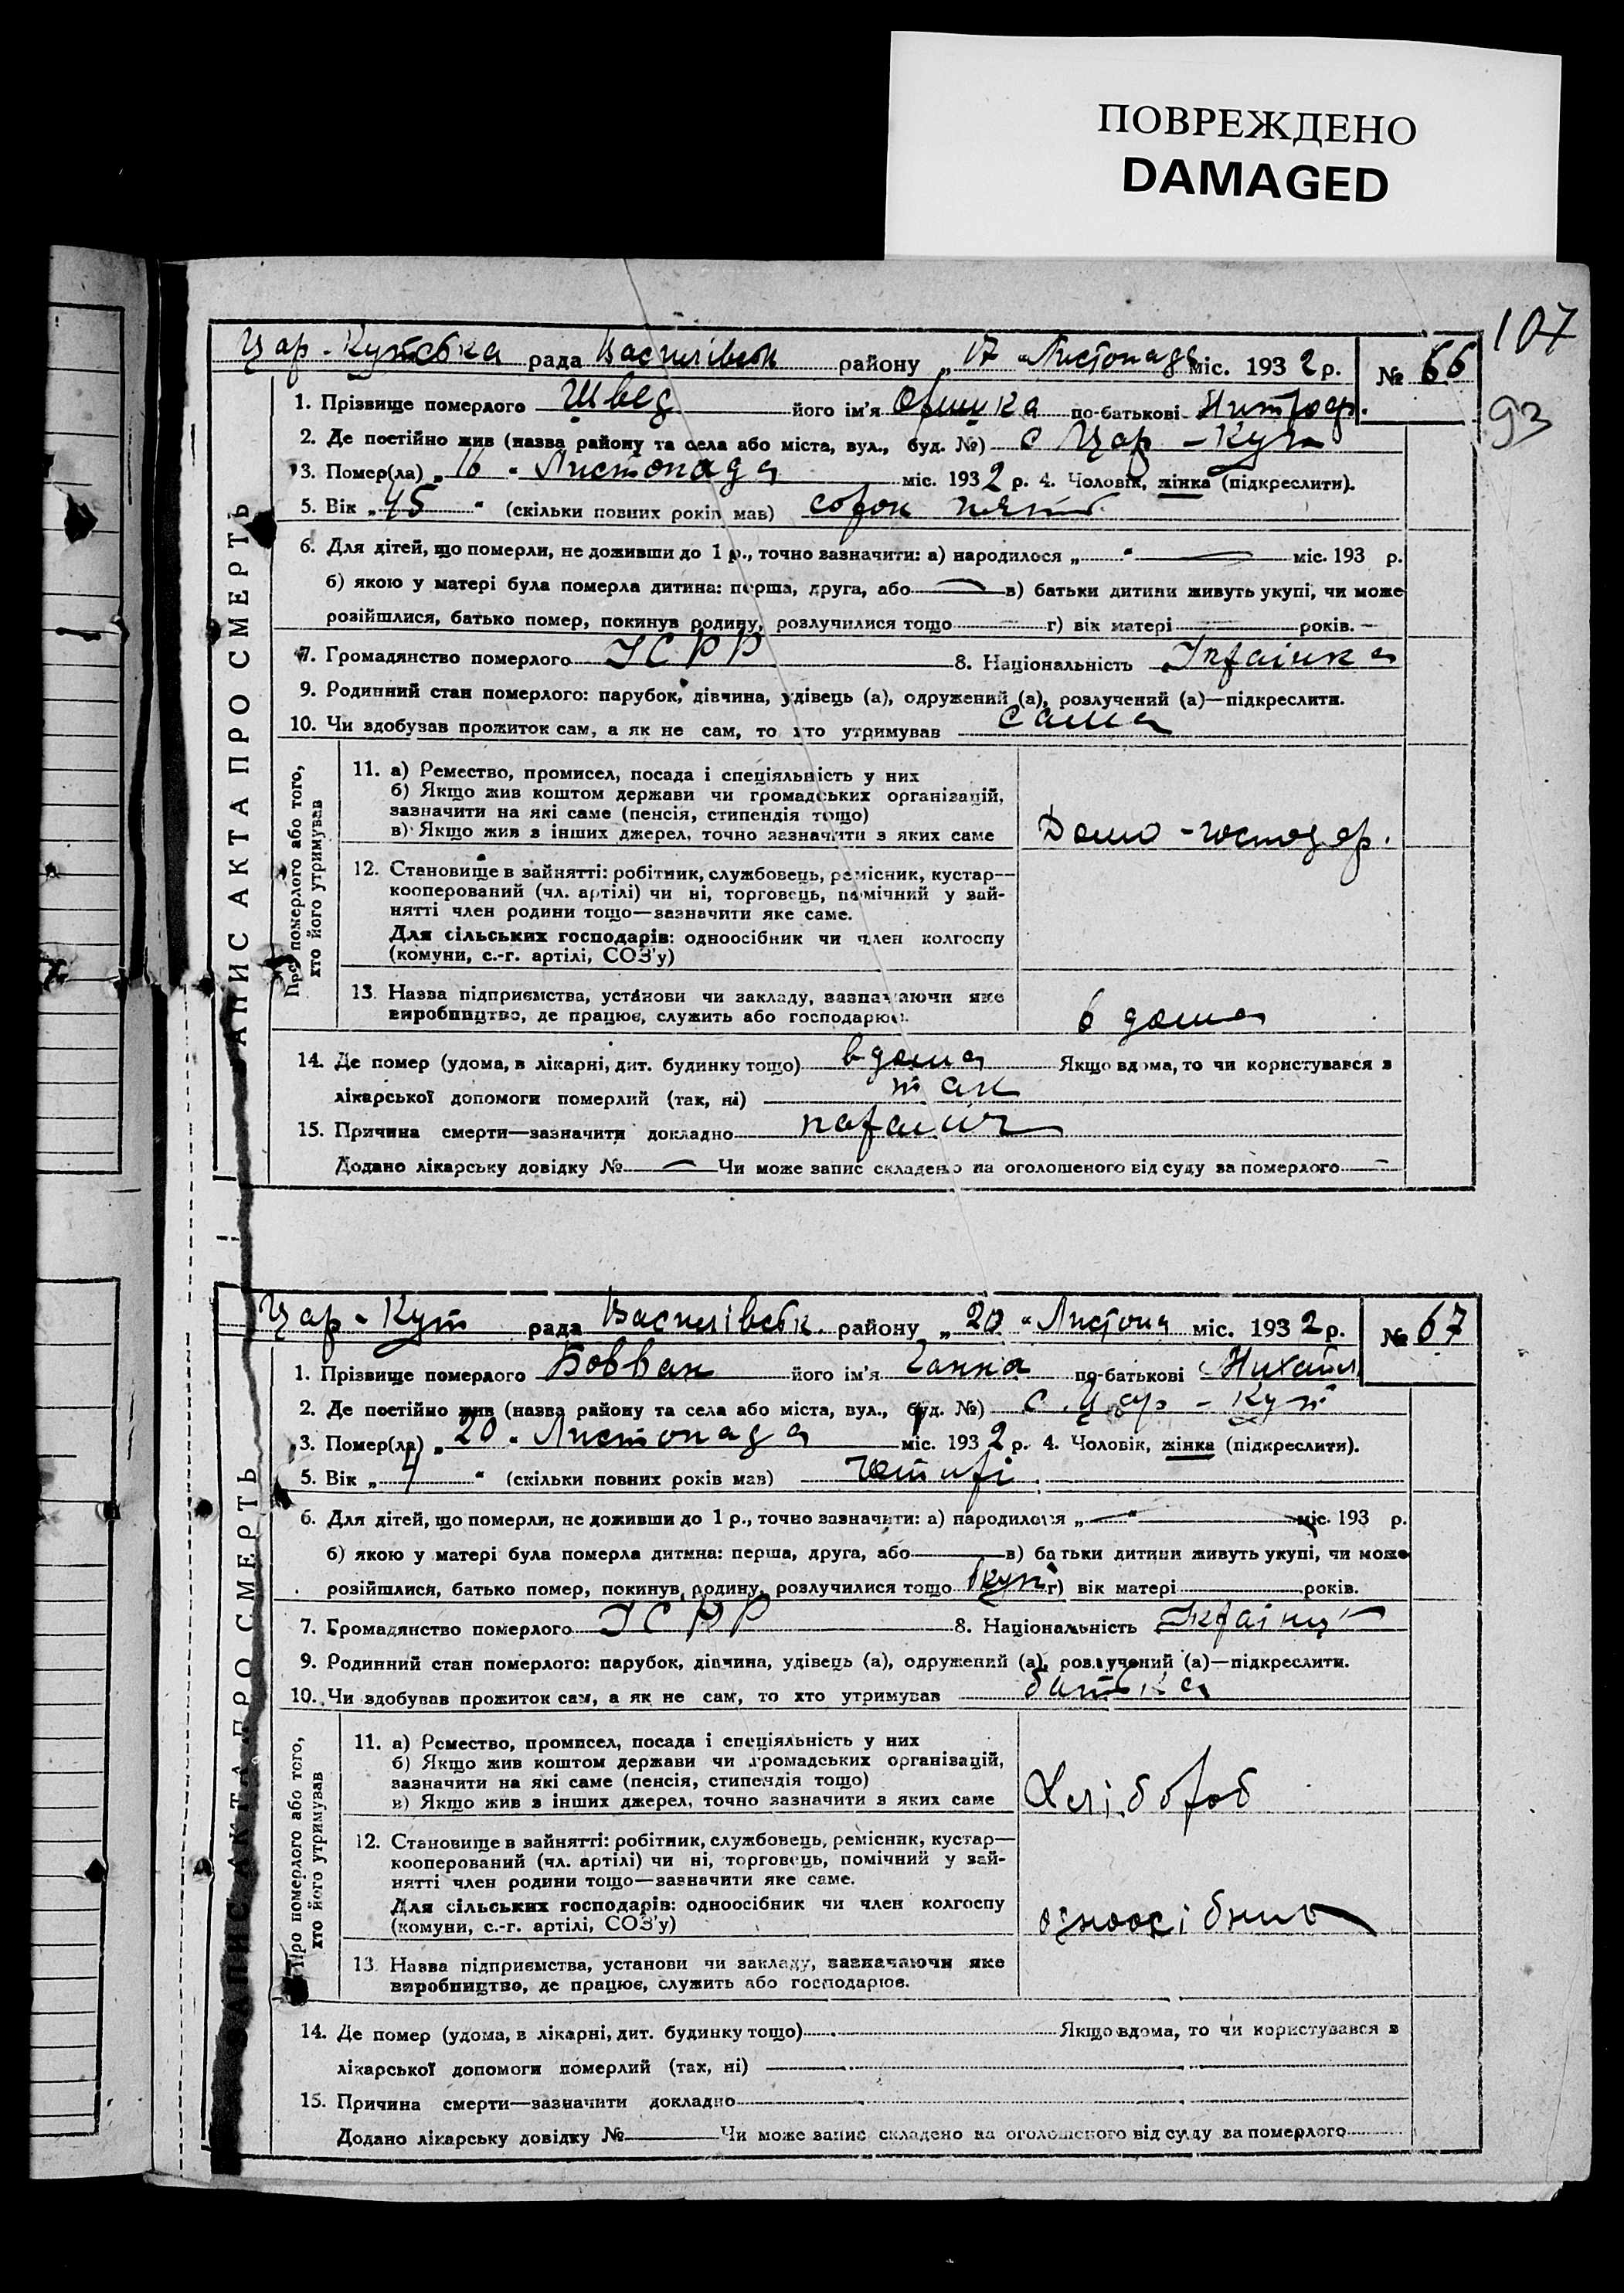 ПОВРЕЖДЕНО
DAMAGED
107
93
Цар-Кутська рада Василівськ району „17 "Листопада міс. 1932 р. № 66
1. Прізвище померлого Швед його ім'я Оришка по-батькові
2. Де постійно жив (назва району та села або міста, вул., буд. №) с Цар-Кут
3. Помер(ла) „16 " Листопада міс. 1932 р. 4. Чоловік, жінка (підкреслити).
5. Вік „45 " (скільки повних років мав) сорок пять
6. Для дітей, що померли, не доживши до 1 р., точно зазначити: а) народилося „ " — міс. 193 р.
б) якою у матері була померла дитина: перша, друга, або — в) батьки дитини живуть укупі, чи може
розійшлися, батько помер, покинув родину, розлучилися тощо — г) вік матері — років. —
7. Громадянство померлого УСРР 8. Національність Українка
9. Родинний стан померлого: парубок, дівчина, удівець (а), одружений (а), розлучений (а)—підкреслити.
10. Чи здобував прожиток сам, а як не сам, то хто утримував сама
ЗАПИС АКТА ПРО СМЕРТЬ
Про померлого або того,
хто його утримував
11. а) Ремество, промисел, посада і спеціяльність у них
б) Якщо жив коштом держави чи громадських організацій,
зазначити на які саме (пенсія, стипендія тощо)
в) Якщо жив з інших джерел, точно зазначити з яких саме
Домо-господар.
12. Становище в зайнятті: робітник, службовець, ремісник, кустар—
кооперований (чл. артілі) чи ні, торговець, помічний у зай-
нятті член родини тощо—зазначити яке саме.
Для сільських господарів: одноосібник чи член колгоспу
(комуни, с.-г. артілі, СОЗ'у)
13. Назва підприємства, установи чи закладу, зазначаючи яке
виробництво, де працює, служить або господарює.
в дома
14. Де помер (удома, в лікарні, дит. будинку тощо) вдома Якщо вдома, то чи користувався з
лікарської допомоги померлий (так, ні) так
15. Причина смерти—зазначити докладно
Додано лікарську довідку № — Чи може запис складено на оголошеного від суду за померлого —
Цар-Кут рада Василівськ. району „20 "Листопа міс. 1932 р. № 67
1. Прізвище померлого Бовван його ім'я Ганна по-батькові Михайл
2. Де постійно жив (назва району та села або міста, вул., буд. №) с. Цар-Кут
3. Помер(ла) „20 " Листопада міс. 1932 р. 4. Чоловік, жінка (підкреслити).
5. Вік „4 " (скільки повних років мав) чотирі
6. Для дітей, що померли, не доживши до 1 р., точно зазначити: а) народилося „—" — міс. 193 р.
б) якою у матері була померла дитина: перша, друга, або в) батьки дитини живуть укупі, чи може
розійшлися, батько помер, покинув родину, розлучилися тощо вкупі г) вік матері років.
7. Громадянство померлого УСРР 8. Національність
9. Родинний стан померлого: парубок, дівчина, удівець (а), одружений (а), розлучений (а)—підкреслити.
10. Чи здобував прожиток сам, а як не сам, то хто утримував батька
ЗАПИС АКТА ПРО СМЕРТЬ
Про померлого або того,
хто його утримував
11. а) Ремество, промисел, посада і спеціяльність у них
б) Якщо жив коштом держави чи громадських організацій,
зазначити на які саме (пенсія, стипендія тощо)
в) Якщо жив з інших джерел, точно зазначити з яких саме
Хлібороб
12. Становище в зайнятті: робітник, службовець, ремісник, кустар—
кооперований (чл. артілі) чи ні, торговець, помічний у зай-
нятті член родини тощо—зазначити яке саме.
Для сільських господарів: одноосібник чи член колгоспу
(комуни, с.-г. артілі, СОЗ'у)
одноосібник
13. Назва підприємства, установи чи закладу, зазначаючи яке
виробництво, де працює, служить або господарює.
14. Де помер (удома, в лікарні, дит. будинку тощо) Якщо вдома, то чи користувався з
лікарської допомоги померлий (так, ні)
15. Причина смерти—зазначити докладно
Додано лікарську довідку № Чи може запис складено на оголошеного від суду за померлого